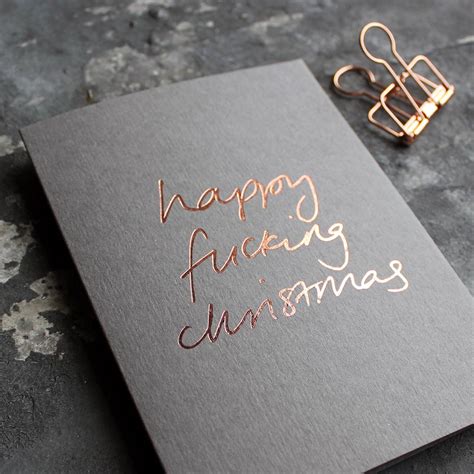 happy
fucking
christmas